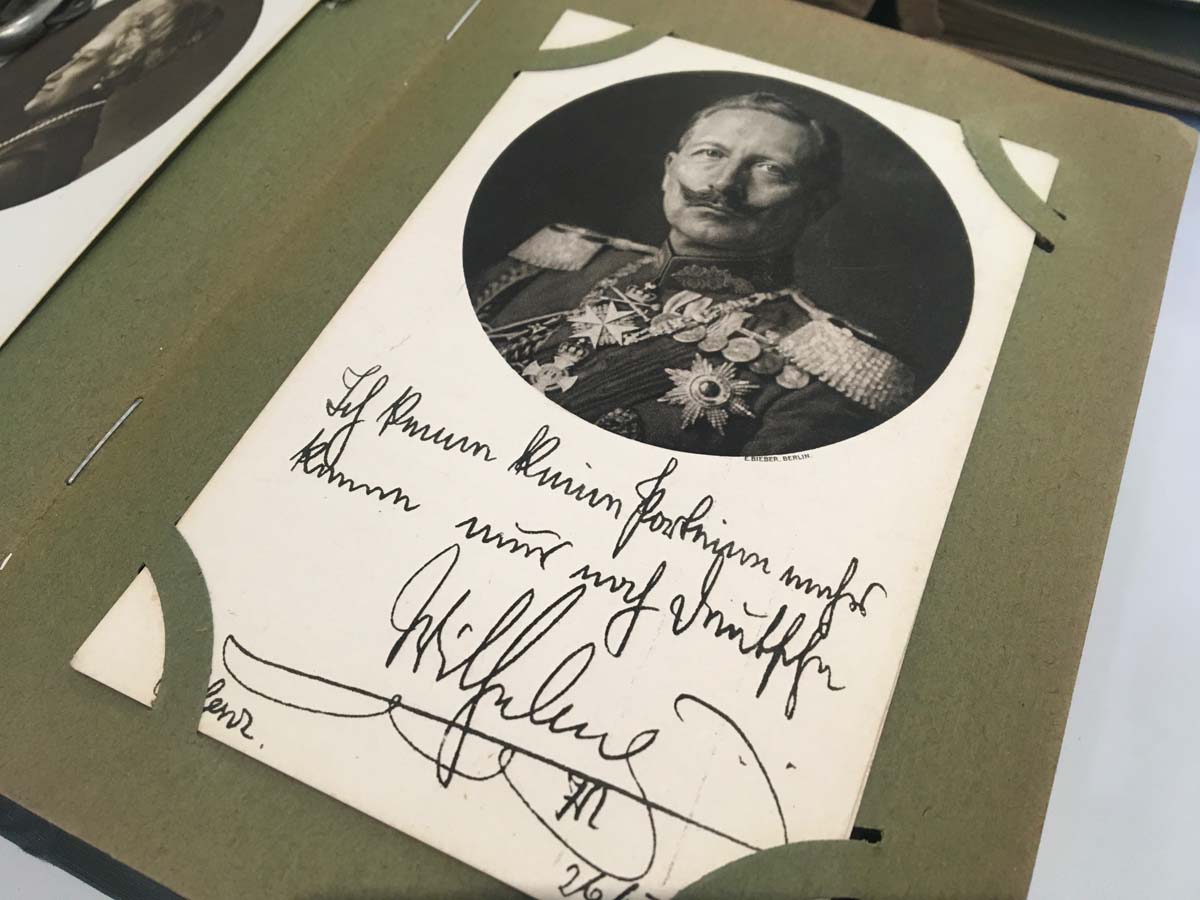 E. BIEBER, BERLIN.
Ich kenne keine Parteien mehr
kenne nur noch Deutsche
Wilhelm